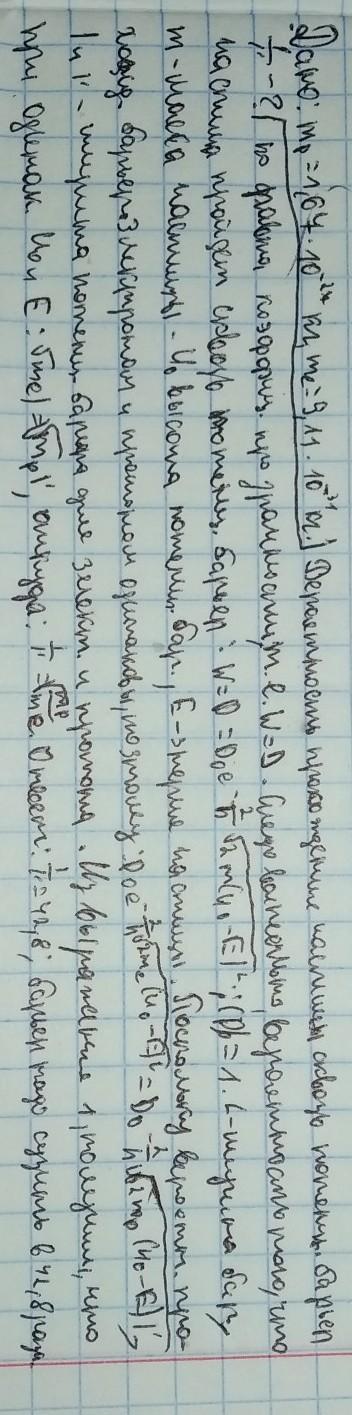 Дано: mp = 1,67·10⁻²⁷ кг, me = 9,11·10⁻³¹ кг. | Вероятность прохождения частиц сквозь потенц. барьер
l/l' - ? | W равна коэффиц. прозрачности, т.е. W=D. Следовательно, вероятность того, что
частица пройдет сквозь потенц. барьер: W = D = D₀e^(-2/ħ √2m(U₀-E) l); (D₀)=1. l-ширина бар,
m-масса частицы - U₀ высота потенц. бар., E-энергия частицы. Поскольку вероятн. про-
хожд. барьера электроном и протоном одинаковы, поэтому: D₀e^(-2/ħ √2me(U₀-E) l) = D₀^(-2/ħ √2mp(U₀-E) l'),
l и l' - ширина потенц. барьера для элект. и протона. Из выражения 1, получим, что
при одинак. U₀ и E: √me l = √mp l', откуда: l/l' = √mp/me. Ответ: l/l' = 42,8; барьер надо сузить в 42,8 раза.